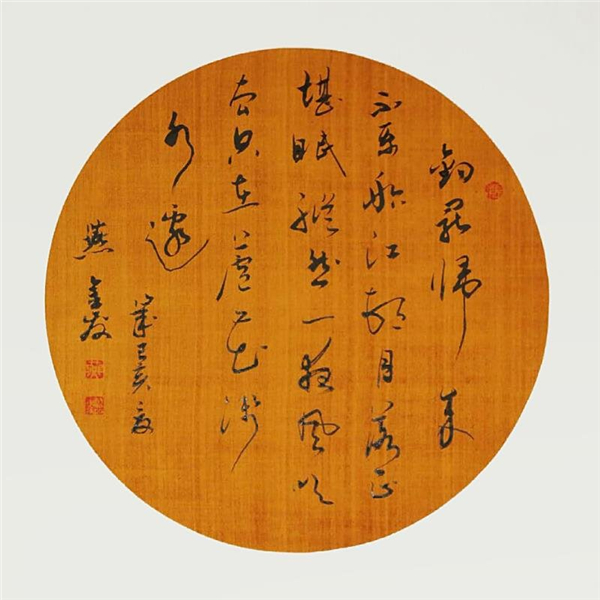 釣罷歸來
不系船江邨月落正
堪眠縱然一夜風吹
去只在蘆花淺
水邊
歲己亥夏
燕